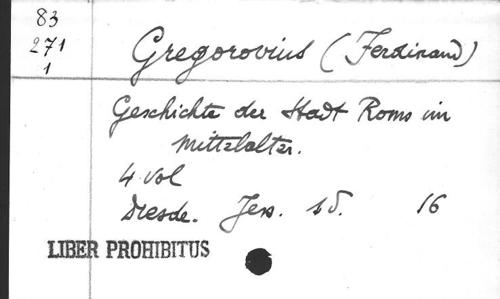 83
271
1
Gregorovius (Ferdinand)
Geschichte der Stadt Roms im
Mittelalter.
4 vol
Dresde. Jess. s d. 16
LIBER PROHIBITUS